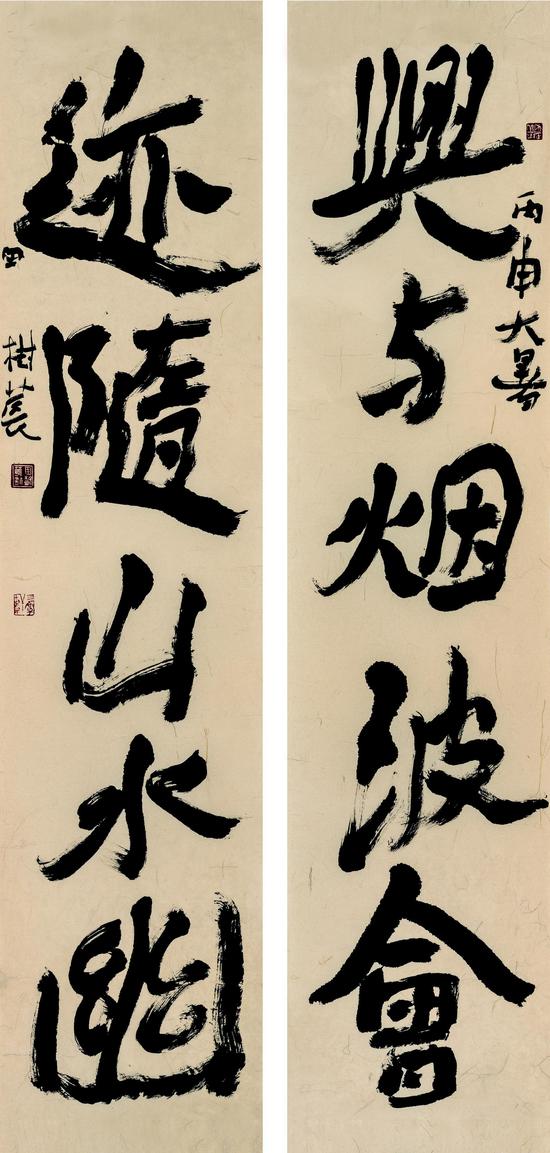 丙申大暑
興与烟波會
迹隨山水幽
田樹萇